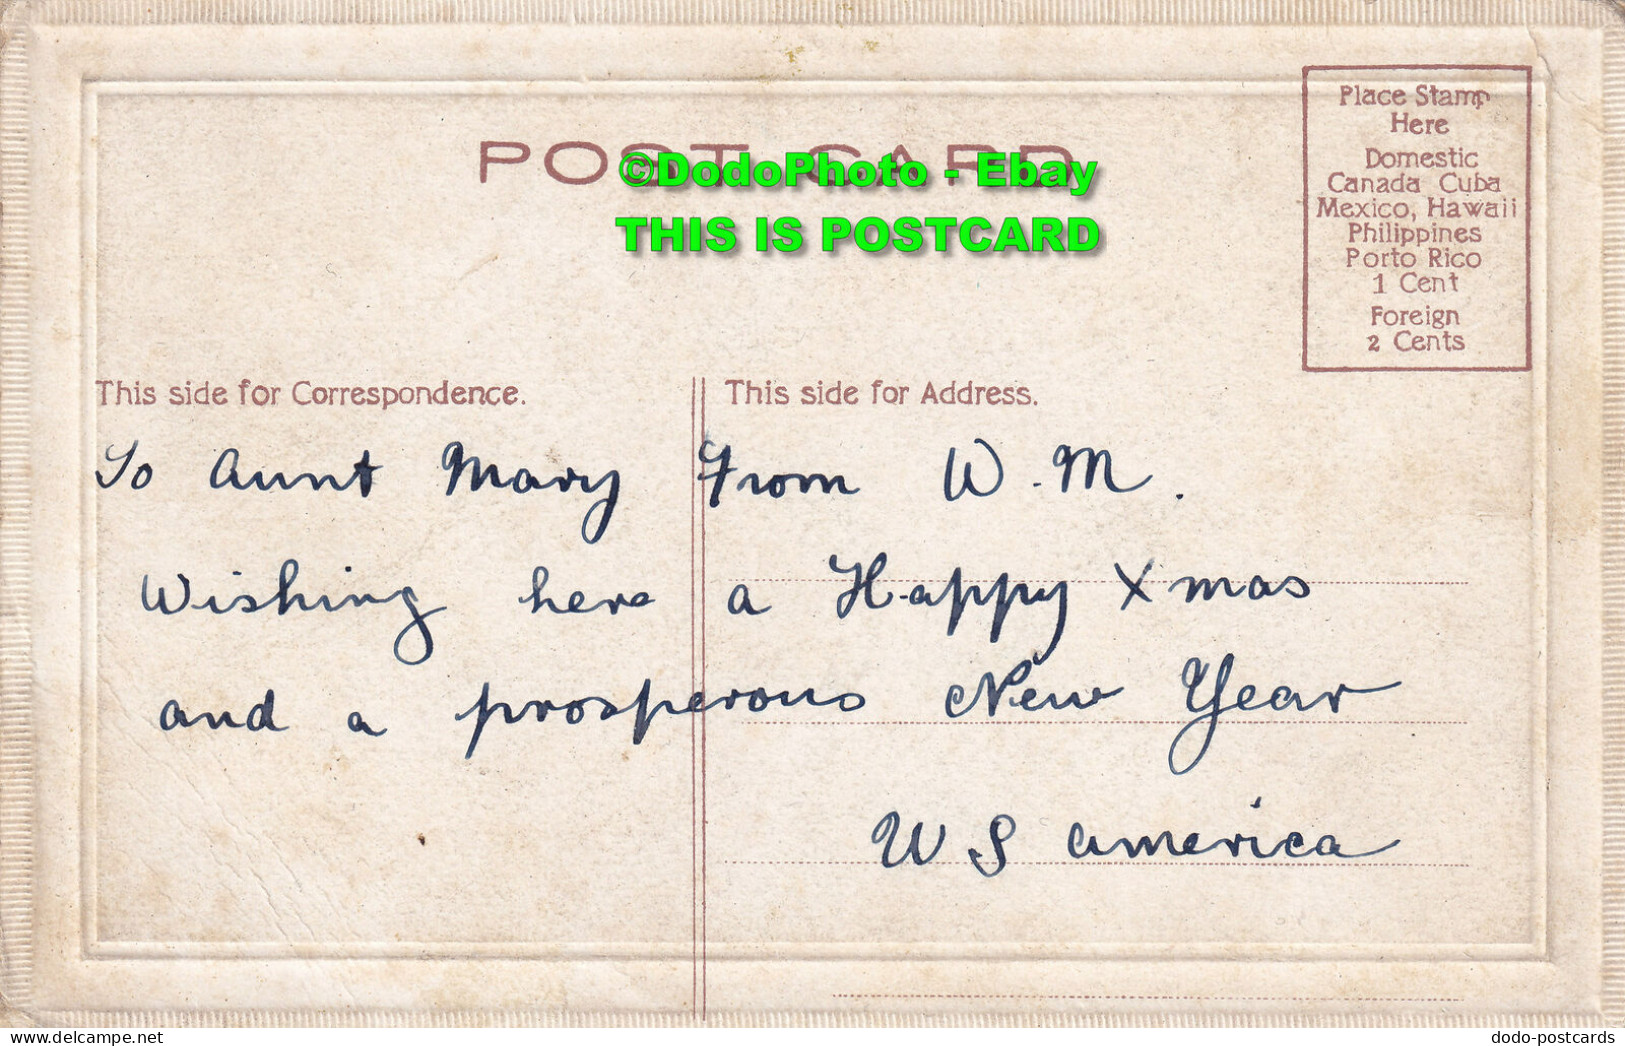 POST CARD
©DodoPhoto - Ebay
THIS IS POSTCARD
Place Stamp
Here
Domestic
Canada Cuba
Mexico, Hawaii
Philippines
Porto Rico
1 Cent
Foreign
2 Cents
This side for Correspondence.
This side for Address.
To Aunt Mary From W. M.
Wishing here a Happy Xmas
and a prosperous New Year
U S America
www.delcampe.net
dodo-postcards